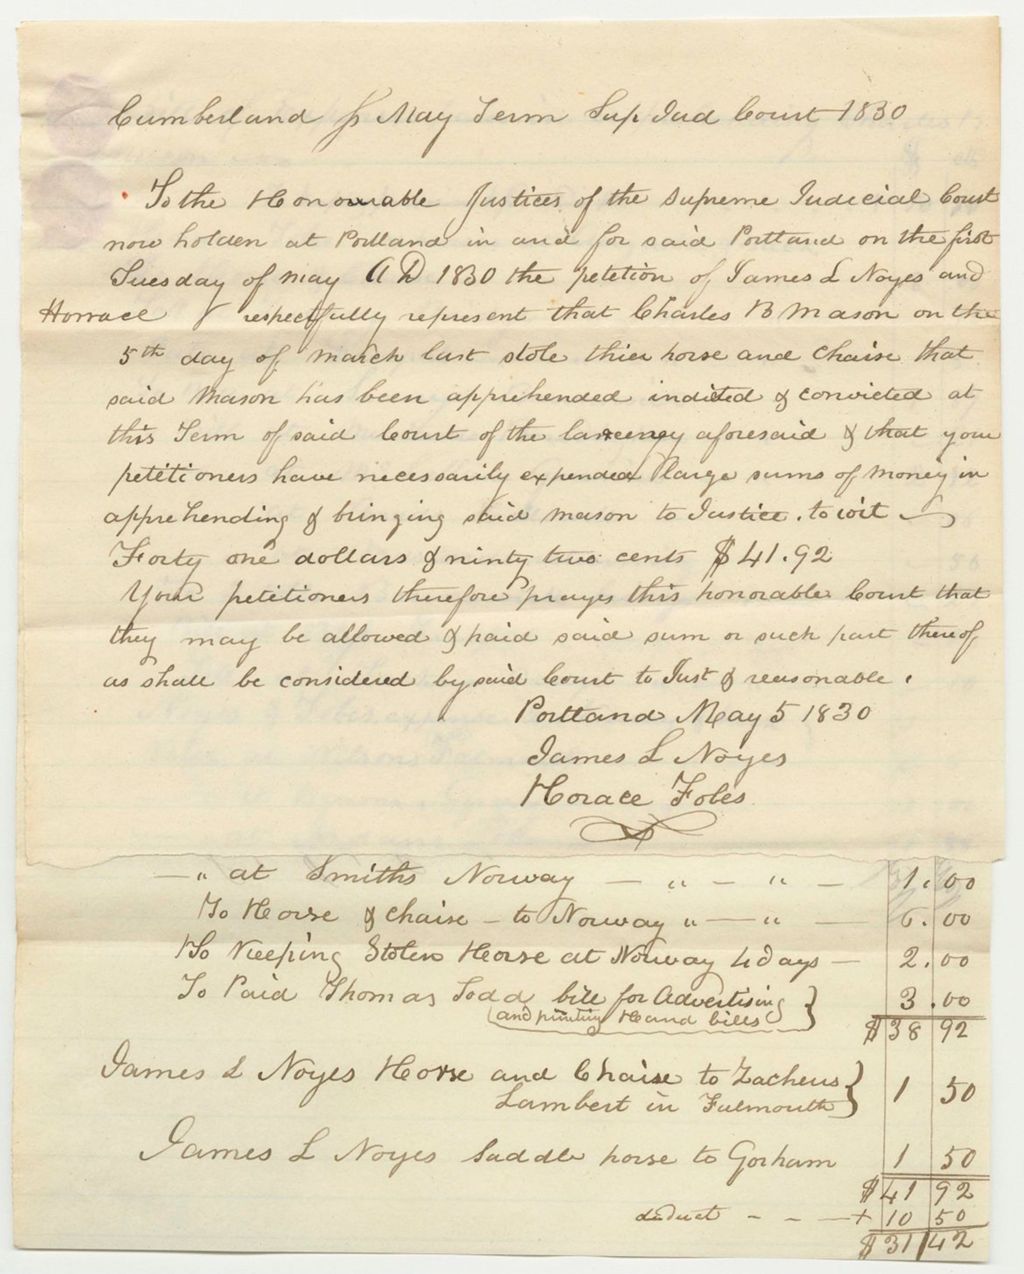 Cumberland ss May Term Sup Jud Court 1830
To the Honourable Justices of the Supreme Judicial Court
now holden at Portland in and for said Portland on the first
Tuesday of May A D 1830 the petition of James L Noyes and
Horrace F respectfully represent that Charles B Mason on the
5th day of March last stole thier horse and chaise that
said Mason has been apprehended indicted & convicted at
this Term of said Court of the larceny aforesaid & that your
petitioners have necessarily expended large sums of money in
apprehending & bringing said Mason to Justice. to wit
Forty one dollars & ninty two cents $41.92
Your petitioners therefore prayes this honorable Court that
they may be allowed & paid said sum or such part thereof
as shall be considered by said Court to Just & reasonable.
Portland May 5 1830
James L Noyes
Horace Fobes
— " at Smiths Norway — " — " — 1.00
To Horse & chaise — to Norway " — " — 6.00
To Keeping Stolen Horse at Norway 4 days — 2.00
To Paid Thomas Todd bill for Advertising } 3.00
(and printing Hand bills)
$38 92
James L Noyes Horse and Chaise to Zacheus } 1 50
Lambert in Falmouth
James L Noyes Saddle horse to Gorham 1 50
$41 92
deduct - - — + 10 50
$31 42